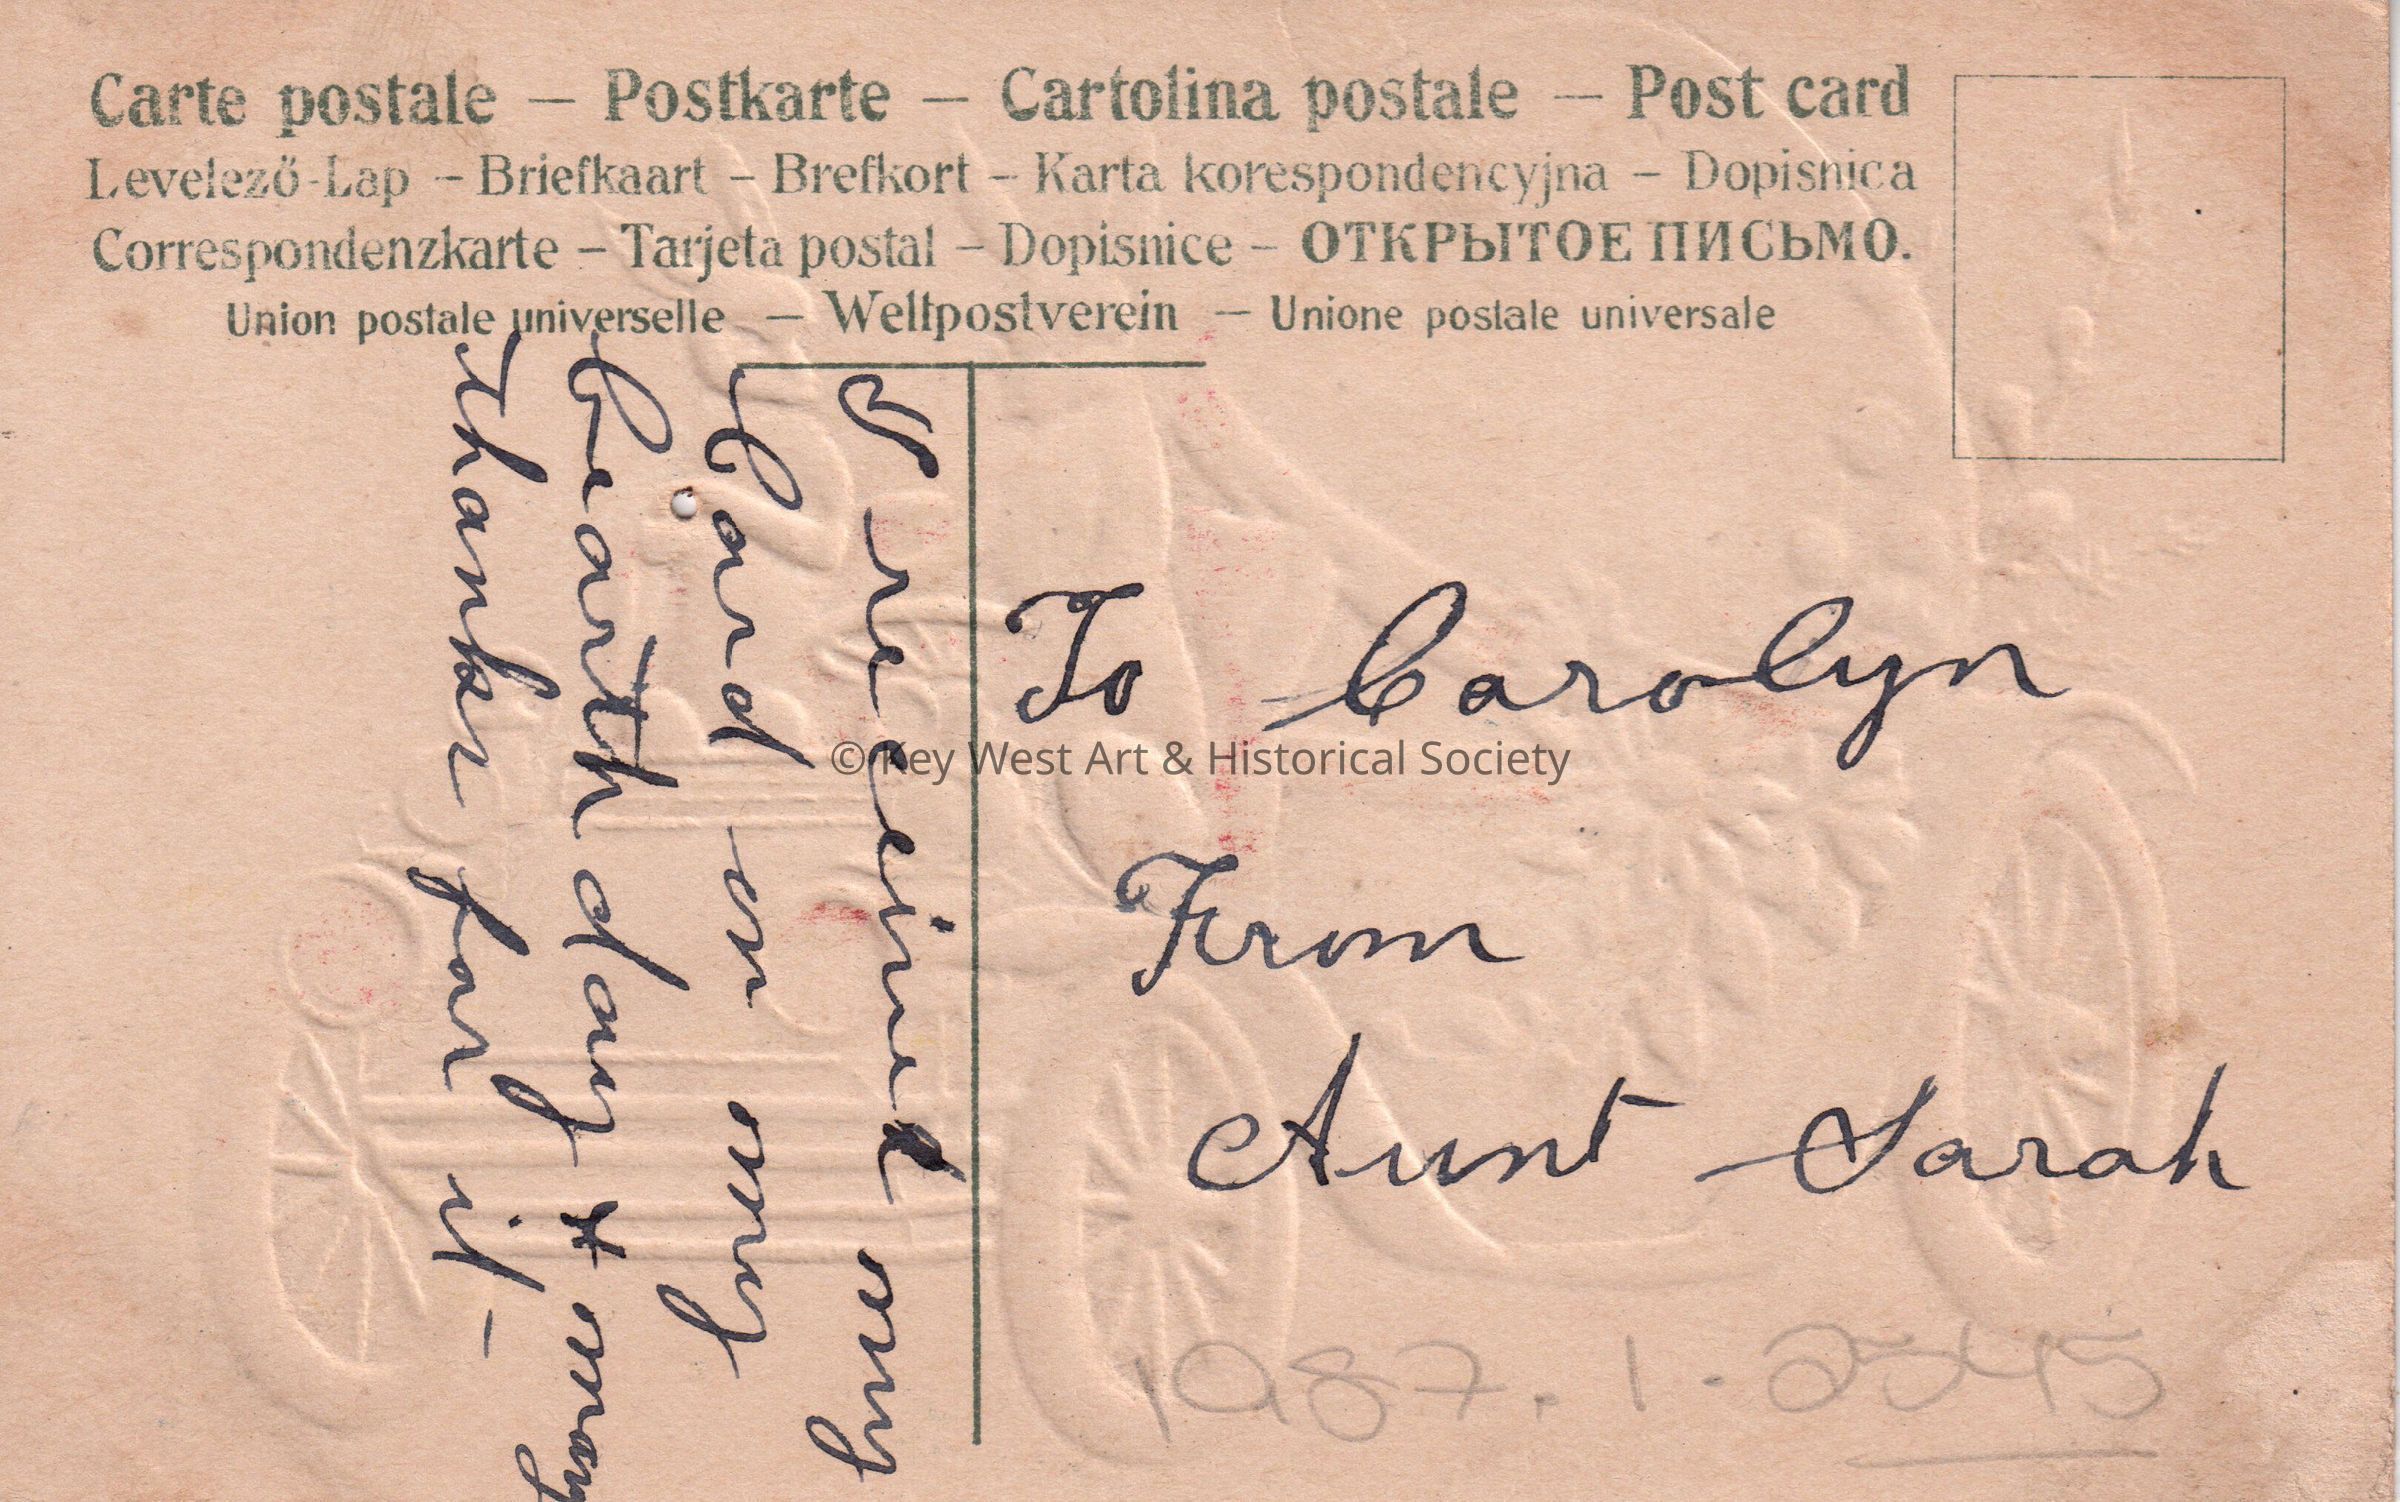 Carte postale – Postkarte – Cartolina postale – Post card
Levelező-Lap – Briefkaart – Brefkort – Karta korespondencyjna – Dopisnica
Correspondenzkarte – Tarjeta postal – Dopisnice – ОТКРЫТОЕ ПИСЬМО.
Union postale universelle – Weltpostverein – Unione postale universale
I received my
Card on my
Bearthday + many
Thanks for it –
To Carolyn
From
Aunt Sarah
© Key West Art & Historical Society
1987.1.2545